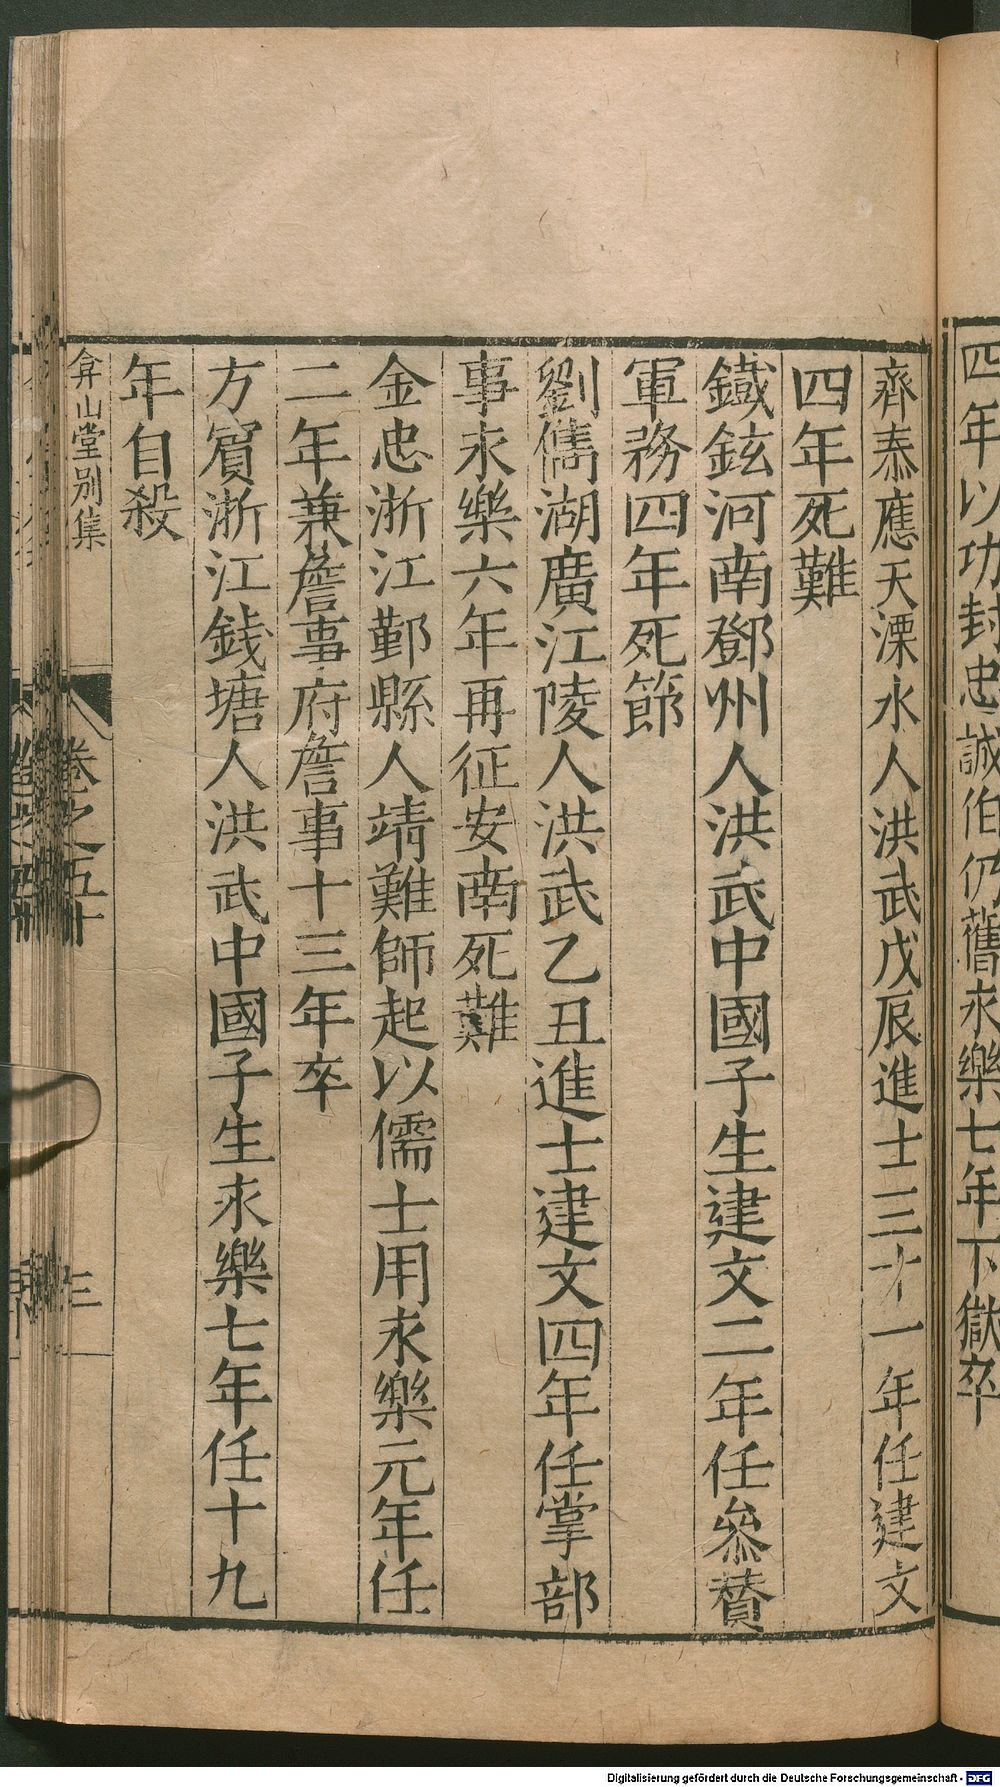 四年以功封忠誠伯仍舊永樂七年下獄卒
齊泰應天溧水人洪武戊辰進士三十一年任建文
四年死難
鐵鉉河南鄧州人洪武中國子生建文二年任叅贊
軍務四年死節
劉儁湖廣江陵人洪武乙丑進士建文四年任掌部
事永樂六年再征安南死難
金忠浙江鄞縣人靖難師起以儒士用永樂元年任
二年兼詹事府詹事十三年卒
方賔浙江錢塘人洪武中國子生永樂七年任十九
年自殺
弇山堂别集
卷之五十
三
Digitalisierung gefördert durch die Deutsche Forschungsgemeinschaft - DFG